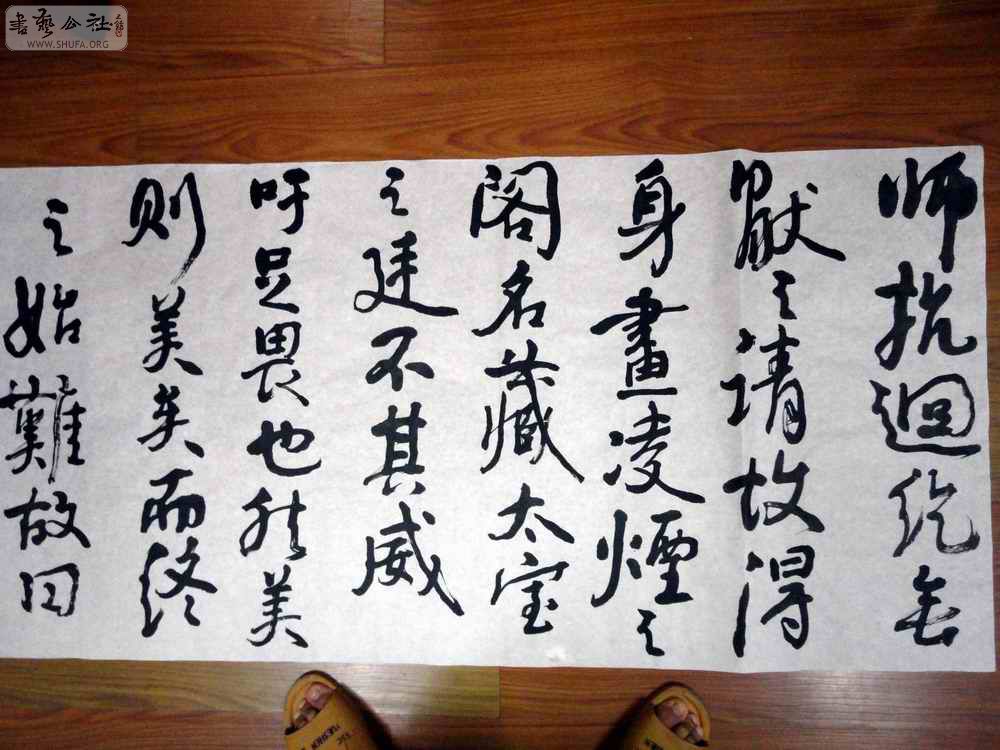 書藝公社
WWW.SHUFA.ORG
师抗迴紇無
猒之請故得
身畫凌煙之
閣名藏太室
之廷不其威
吁足畏也然美
則美矣而終
之始難故曰